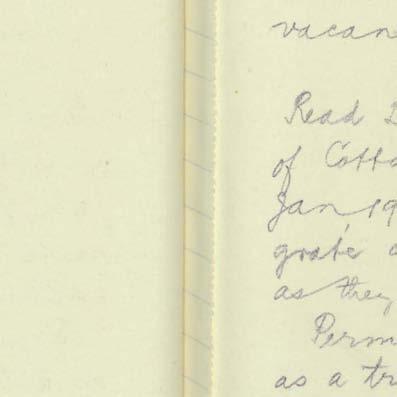 vacan
Read
of Cotta
Jan, 19
grate
as they
Perm
as a tr